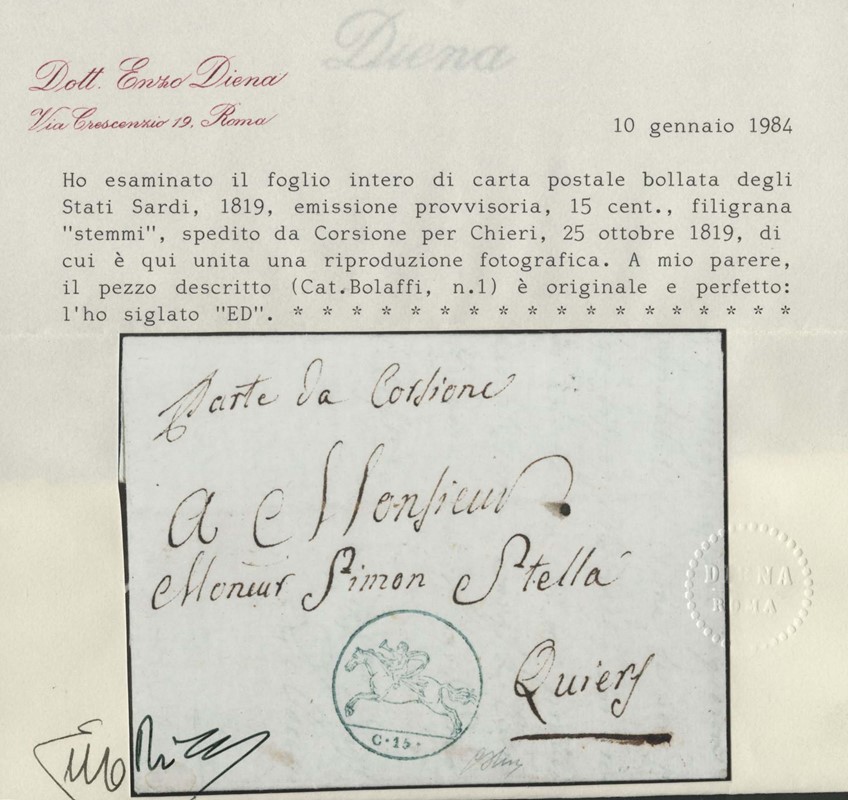 Diena
Dott. Enzo Diena
Via Crescenzio 19, Roma
10 gennaio 1984
Ho esaminato il foglio intero di carta postale bollata degli
Stati Sardi, 1819, emissione provvisoria, 15 cent., filigrana
"stemmi", spedito da Corsione per Chieri, 25 ottobre 1819, di
cui è qui unita una riproduzione fotografica. A mio parere,
il pezzo descritto (Cat.Bolaffi, n.1) è originale e perfetto:
l'ho siglato "ED". * * * * * * * * * * * * * * * * * *
Parte da Corsione
A Monsieur
Monsieur Simon Stella
Quiers
DIENA
ROMA
C·15·